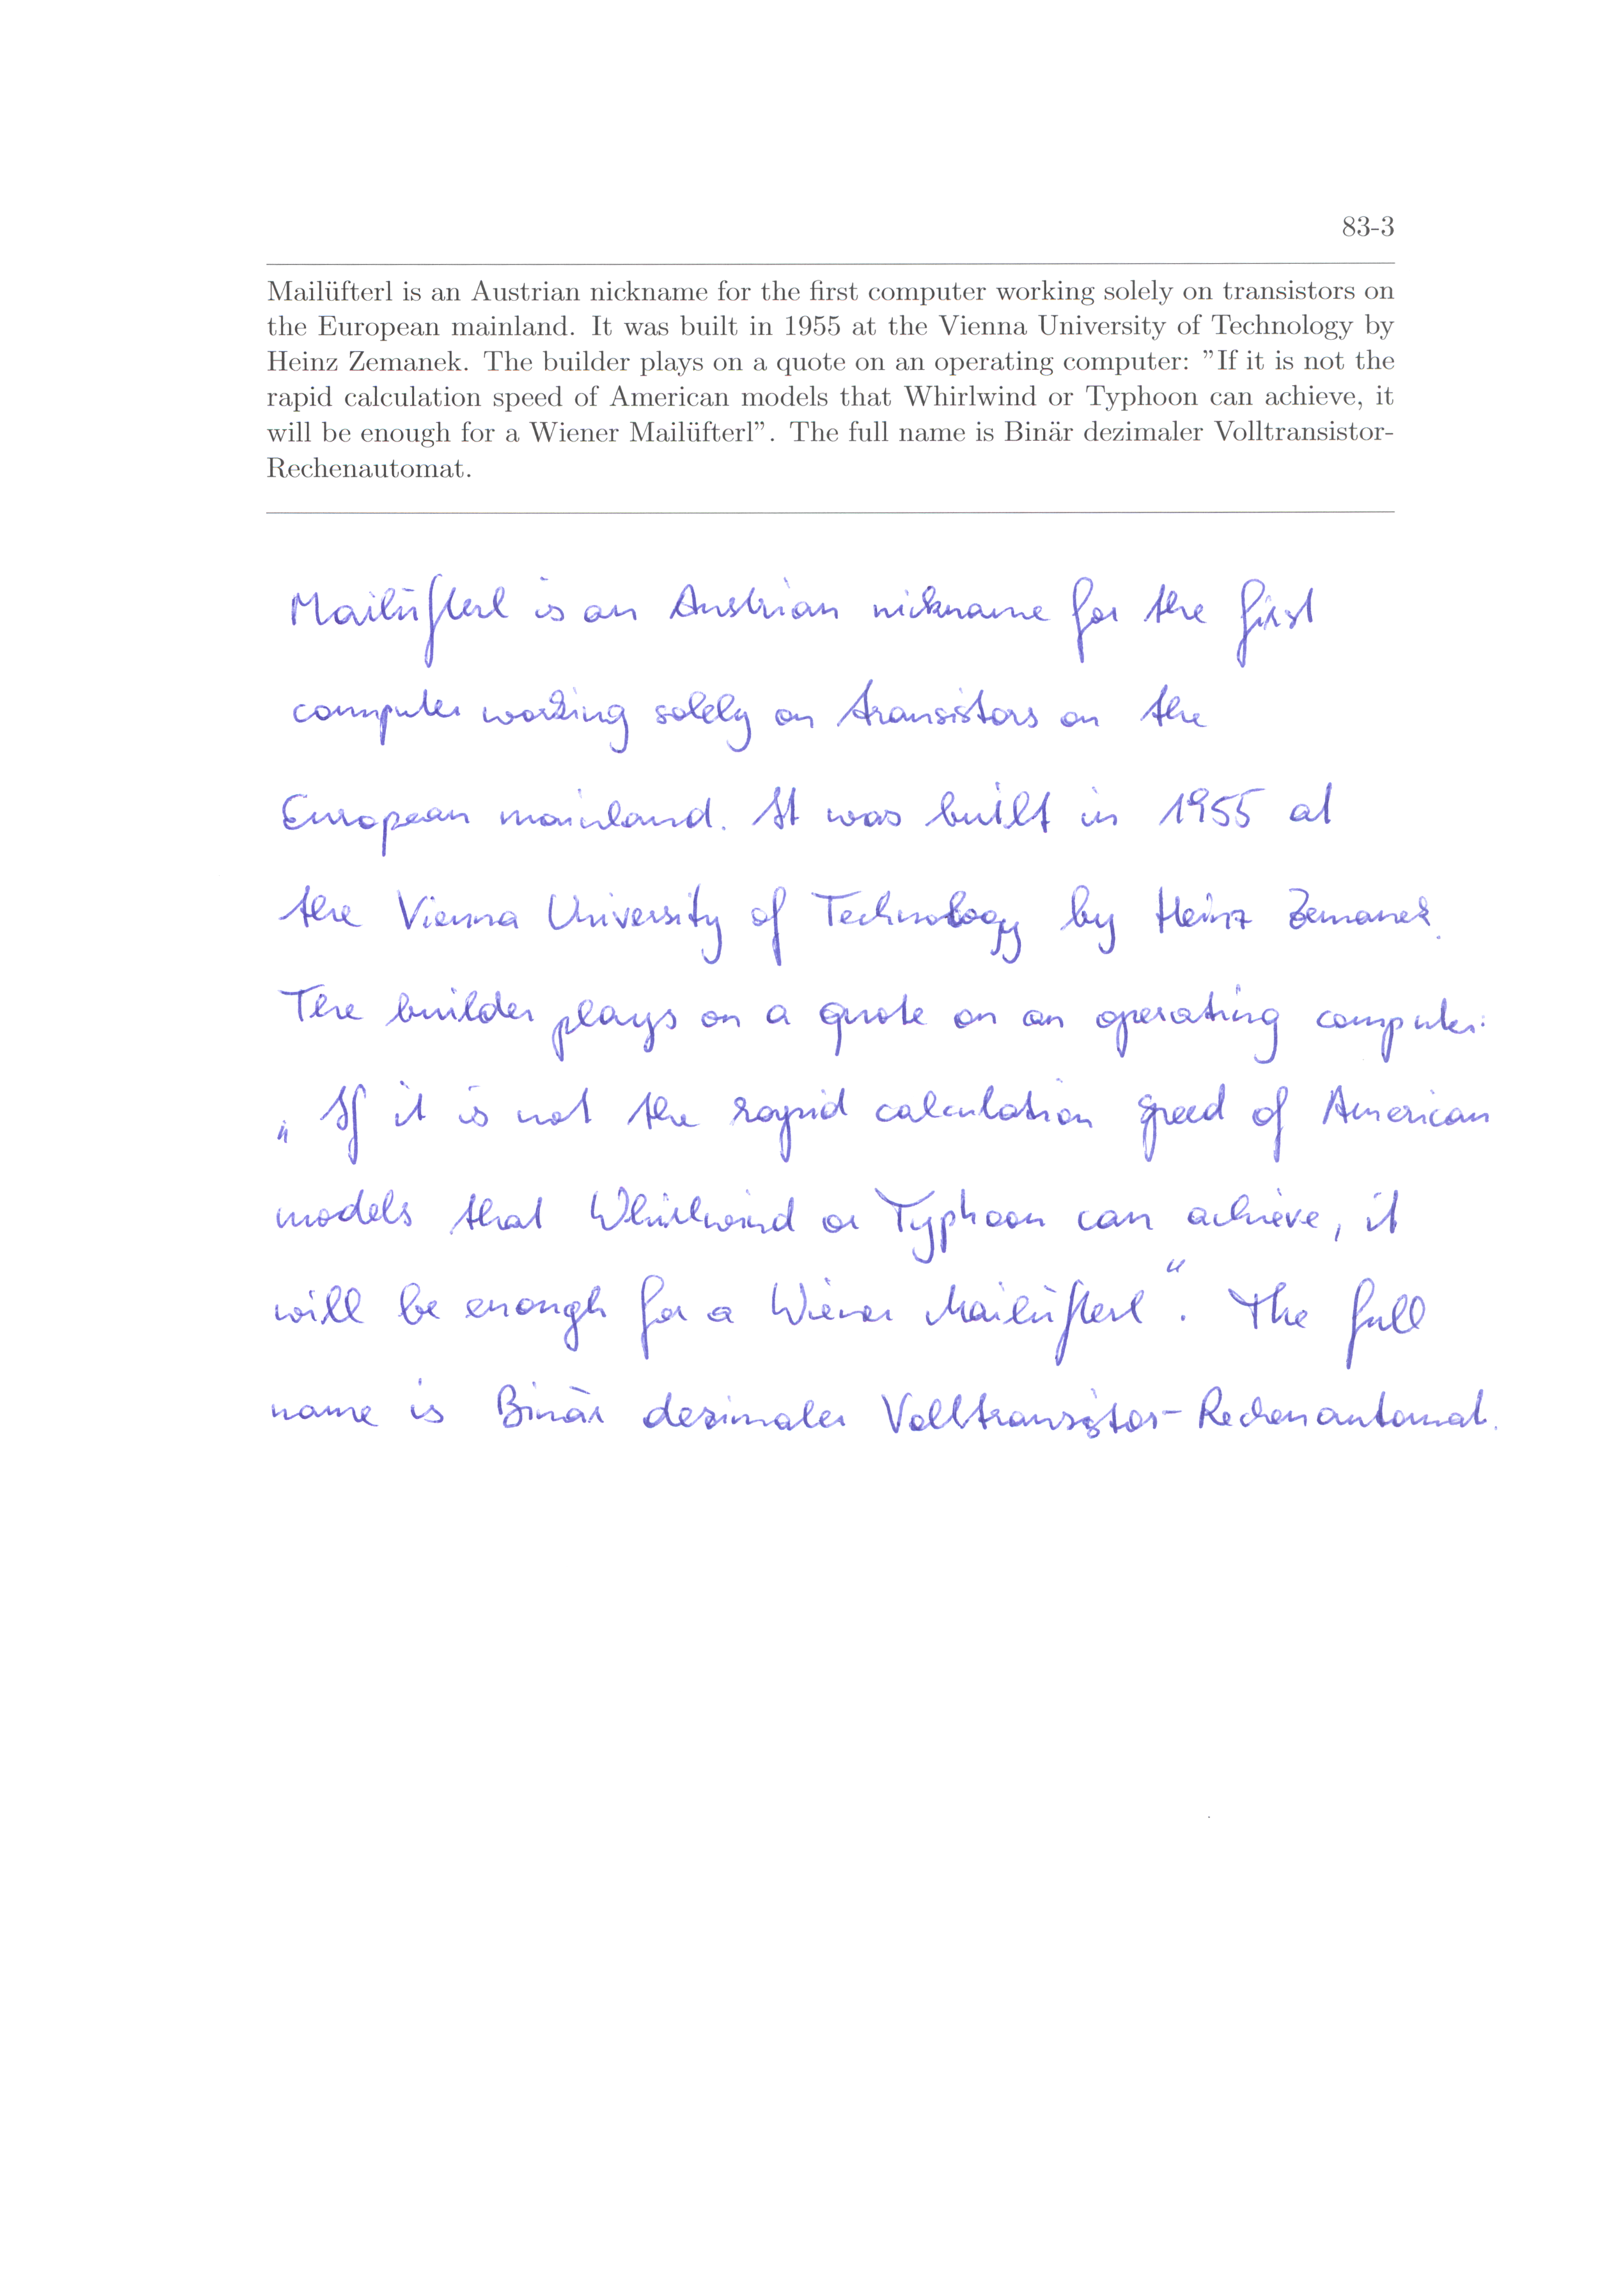 83-3
Mailüfterl is an Austrian nickname for the first computer working solely on transistors on
the European mainland. It was built in 1955 at the Vienna University of Technology by
Heinz Zemanek. The builder plays on a quote on an operating computer: ”If it is not the
rapid calculation speed of American models that Whirlwind or Typhoon can achieve, it
will be enough for a Wiener Mailüfterl”. The full name is Binär dezimaler Volltransistor-
Rechenautomat.
Mailüfterl is an Austrian nickname for the first
computer working solely on transistors on the
European mainland. It was built in 1955 at
the Vienna University of Technology by Heinz Zemanek.
The builder plays on a quote on an operating computer:
„If it is not the rapid calculation speed of American
models that Whirlwind or Typhoon can achieve, it
will be enough for a Wiener Mailüfterl“. The full
name is Binär dezimaler Volltransistor-Rechenautomat.